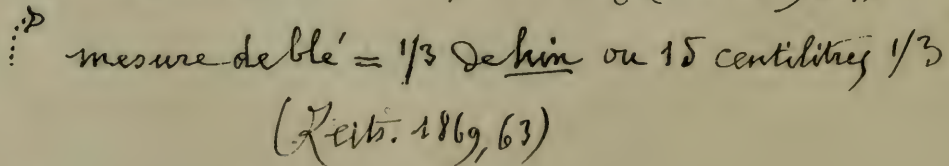 mesure de blé = 1/3 de hin ou 15 centilitres 1/3
(Zeits. 1869, 63)